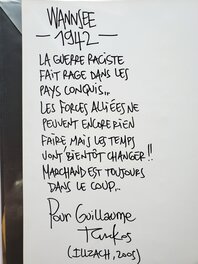 WANNSEE
- 1942 -
LA GUERRE RACISTE
FAIT RAGE DANS LES
PAYS CONQUIS...
LES FORCES ALLIÉES NE
PEUVENT ENCORE RIEN
FAIRE MAIS LES TEMPS
VONT BIENTÔT CHANGER!!
MARCHAND EST TOUJOURS
DANS LE COUP...
Pour Guillaume
(ILLZACH, 2005)